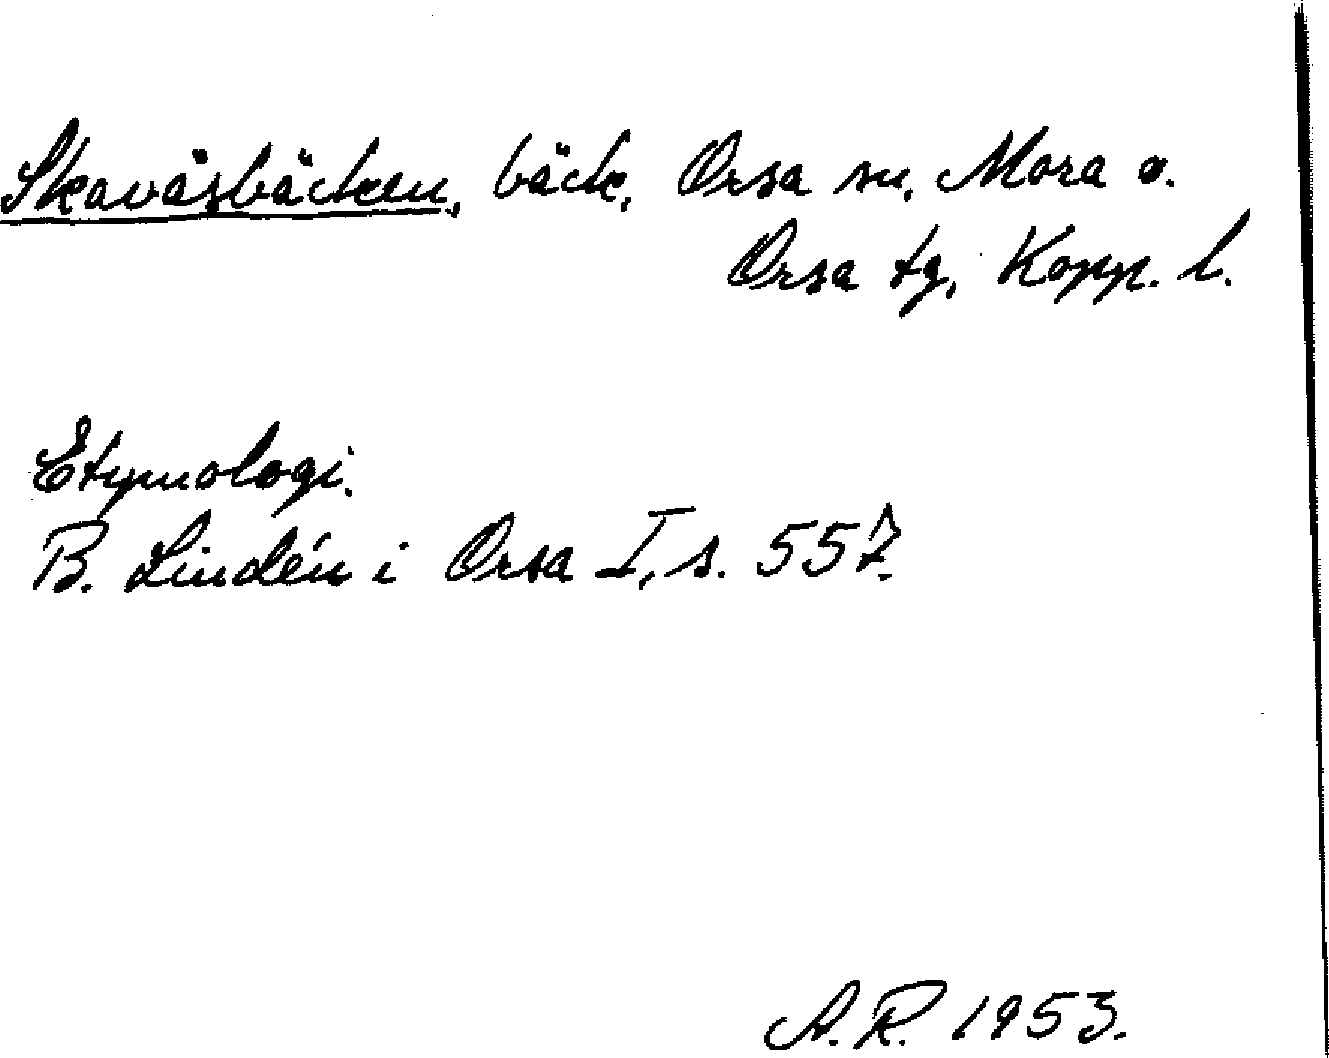 Skaväsbäcken, bäck, Orsa sn, Mora o.
Orsa tg, Kopp. l.
Etymologi.
B. Lindén i Orsa I, s. 557.
A.R. 1953.